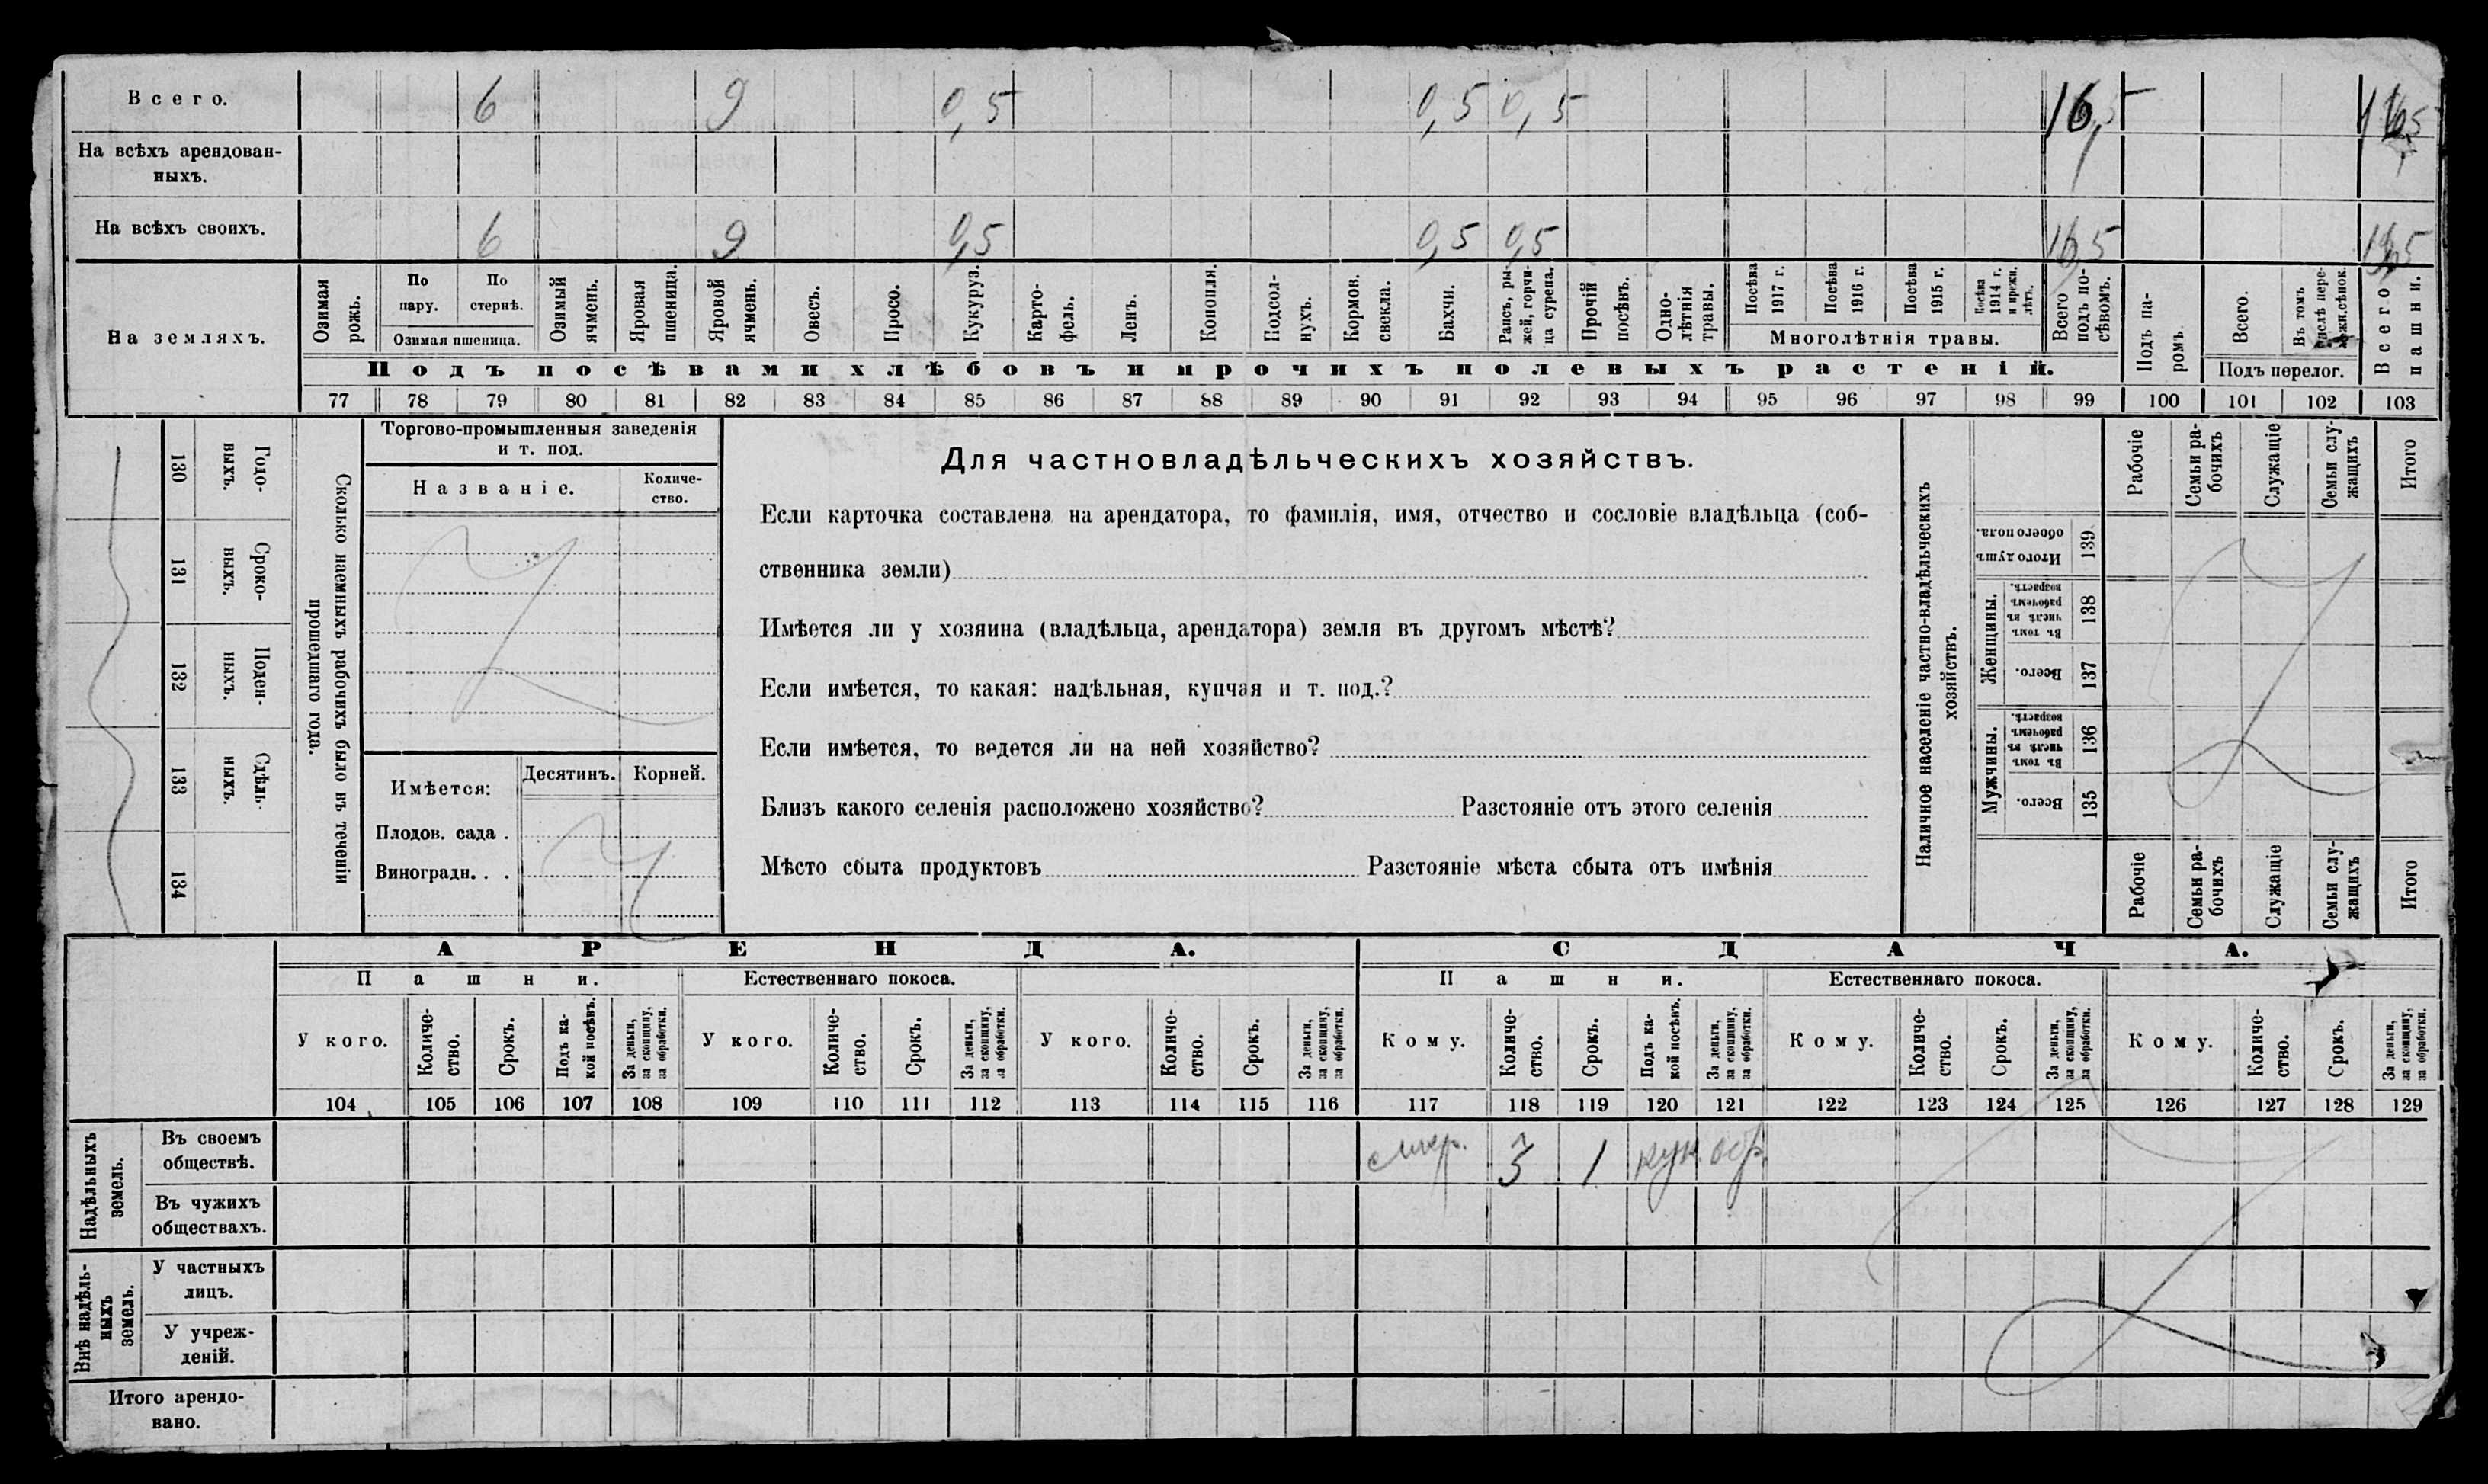 Всего. 6 9 0,5 0,5 0,5 16,5 16,5
На всѣхъ арендован-
ныхъ.
На всѣхъ своихъ. 6 9 0,5 0,5 0,5 16,5 16,5
На земляхъ.
Озимая рожь.
По пару.
По стернѣ.
Озимая пшеница.
Озимый ячмень.
Яровая пшеница.
Яровой ячмень.
Овесъ.
Просо.
Кукуруз.
Карто-
фель.
Ленъ.
Конопля.
Подсол-
нухъ.
Кормов.
свекла.
Бахчи.
Рапсъ, ры-
жей, горчи-
ца сурепа.
Прочій
посѣвъ.
Одно-
лѣтнія
травы.
Посѣва
1917 г.
Посѣва
1916 г.
Посѣва
1915 г.
Посѣва
1914 г.
и прежн.
лѣтъ.
Многолѣтнія травы.
Всего
подъ по-
сѣвомъ.
Подъ па-
ромъ.
Всего.
Въ томъ
числѣ пере-
Подъ перелог.
Всего
пашни.
Подъ посѣвами хлѣбовъ и прочихъ полевыхъ растеній.
77 78 79 80 81 82 83 84 85 86 87 88 89 90 91 92 93 94 95 96 97 98 99 100 101 102 103
130 Годо-
выхъ.
131 Сроко-
выхъ.
132 Поден-
ныхъ.
133 Сдѣль-
ныхъ.
134
Сколько наемныхъ рабочихъ было въ теченіи
прошедшаго года.
Торгово-промышленныя заведенія
и т. под.
Названіе.
Количе-
ство.
Имѣется:
Десятинъ. Корней.
Плодов. сада .
Виноградн. . .
Для частновладѣльческихъ хозяйствъ.
Если карточка составлена на арендатора, то фамилія, имя, отчество и сословіе владѣльца (соб-
ственника земли)
Имѣется ли у хозяина (владѣльца, арендатора) земля въ другомъ мѣстѣ?
Если имѣется, то какая: надѣльная, купчая и т. под.?
Если имѣется, то ведется ли на ней хозяйство?
Близъ какого селенія расположено хозяйство? Разстояніе отъ этого селенія
Мѣсто сбыта продуктовъ Разстояніе мѣста сбыта отъ имѣнія
Наличное населеніе частно-владѣльческихъ
хозяйствъ.
Рабочіе
Семьи ра-
бочихъ
Служащіе
Семьи слу-
жащихъ
Итого
Итого душъ
обоего пола.
139
Женщины.
Въ томъ
числѣ въ
рабочемъ
возрастѣ.
138
Всего.
137
Мужчины.
Въ томъ
числѣ въ
рабочемъ
возрастѣ.
136
Всего.
135
Рабочіе
Семьи ра-
бочихъ
Служащіе
Семьи слу-
жащихъ
Итого
АРЕНДА. СДАЧА.
Пашни. Естественнаго покоса. Пашни. Естественнаго покоса.
У кого.
Количе-
ство.
Срокъ.
Подъ ка-
кой посѣвъ.
За деньги,
за скопщину,
за обработки.
У кого.
Количе-
ство.
Срокъ.
За деньги,
за скопщину,
за обработки.
У кого.
Количе-
ство.
Срокъ.
За деньги,
за скопщину,
за обработки.
Кому.
Количе-
ство.
Срокъ.
Подъ ка-
кой посѣвъ.
За деньги,
за скопщину,
за обработки.
Кому.
Количе-
ство.
Срокъ.
За деньги,
за скопщину,
за обработки.
Кому.
Количе-
ство.
Срокъ.
За деньги,
за скопщину,
за обработки.
104 105 106 107 108 109 110 111 112 113 114 115 116 117 118 119 120 121 122 123 124 125 126 127 128 129
Надѣльныхъ
земель.
Въ своемъ
обществѣ.
3 1
Въ чужихъ
обществахъ.
Внѣ надѣль-
ныхъ
земель.
У частныхъ
лицъ.
У учреж-
деній.
Итого арендо-
вано.